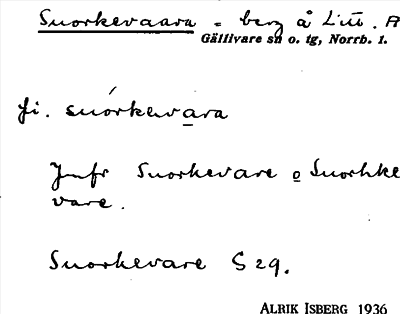 Suorkevaara - berg å Lin. A
Gällivare sn o. tg, Norrb. 1.
fi. suórkevara
Jmfr Suorkevare o Suorhke
vare.
Suorkevare S 29.
ALRIK ISBERG 1936